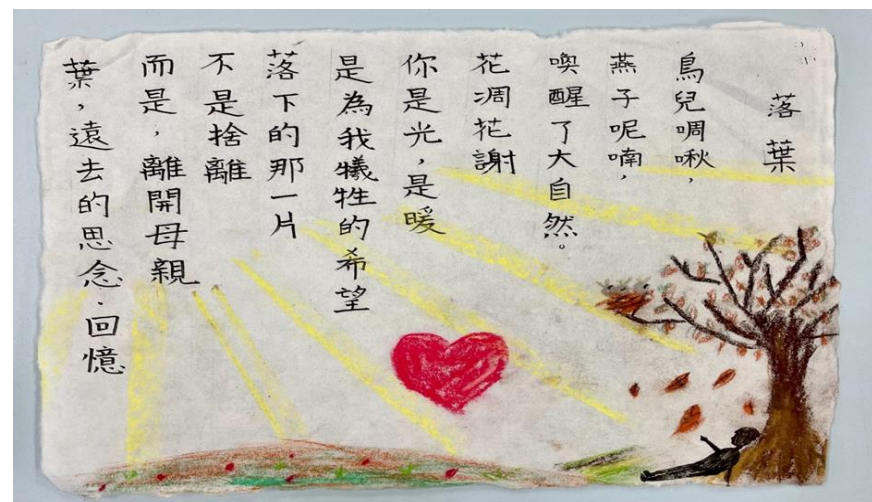 落葉
鳥兒啁啾，
燕子呢喃，
喚醒了大自然。
花凋花謝
你是光，是暖
是為我犧牲的希望
落下的那一片
不是捨離
而是，離開母親
葉，遠去的思念．回憶